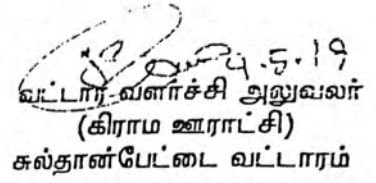 4.5.19
வட்டார வளர்ச்சி அலுவலர்
(கிராம ஊராட்சி)
சுல்தான்பேட்டை வட்டாரம்